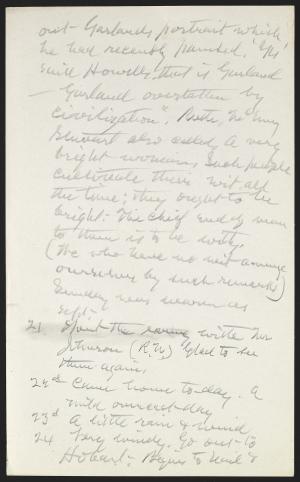 out - Garland's portrait which
he had recently painted. "Yes
said Howells, that is Garland
— Garland overtaken by
civilization". Ruth, Mc
Stewart also called, a very
bright woman. Such people
cultivate their wit all
the time; they ought to be
bright - The chief end of man
to them is to be witty
(We who have no wit avenge
ourselves by such remarks)
Sunday was warm as
Sept.
21 Spent the evening with
Johnson (R.U.) Glad to see
them again.
22d Came home to-day. A
mild overcast day
23d A little rain & wind
24 Very windy. Go out to
Hobart - Begin to nail &